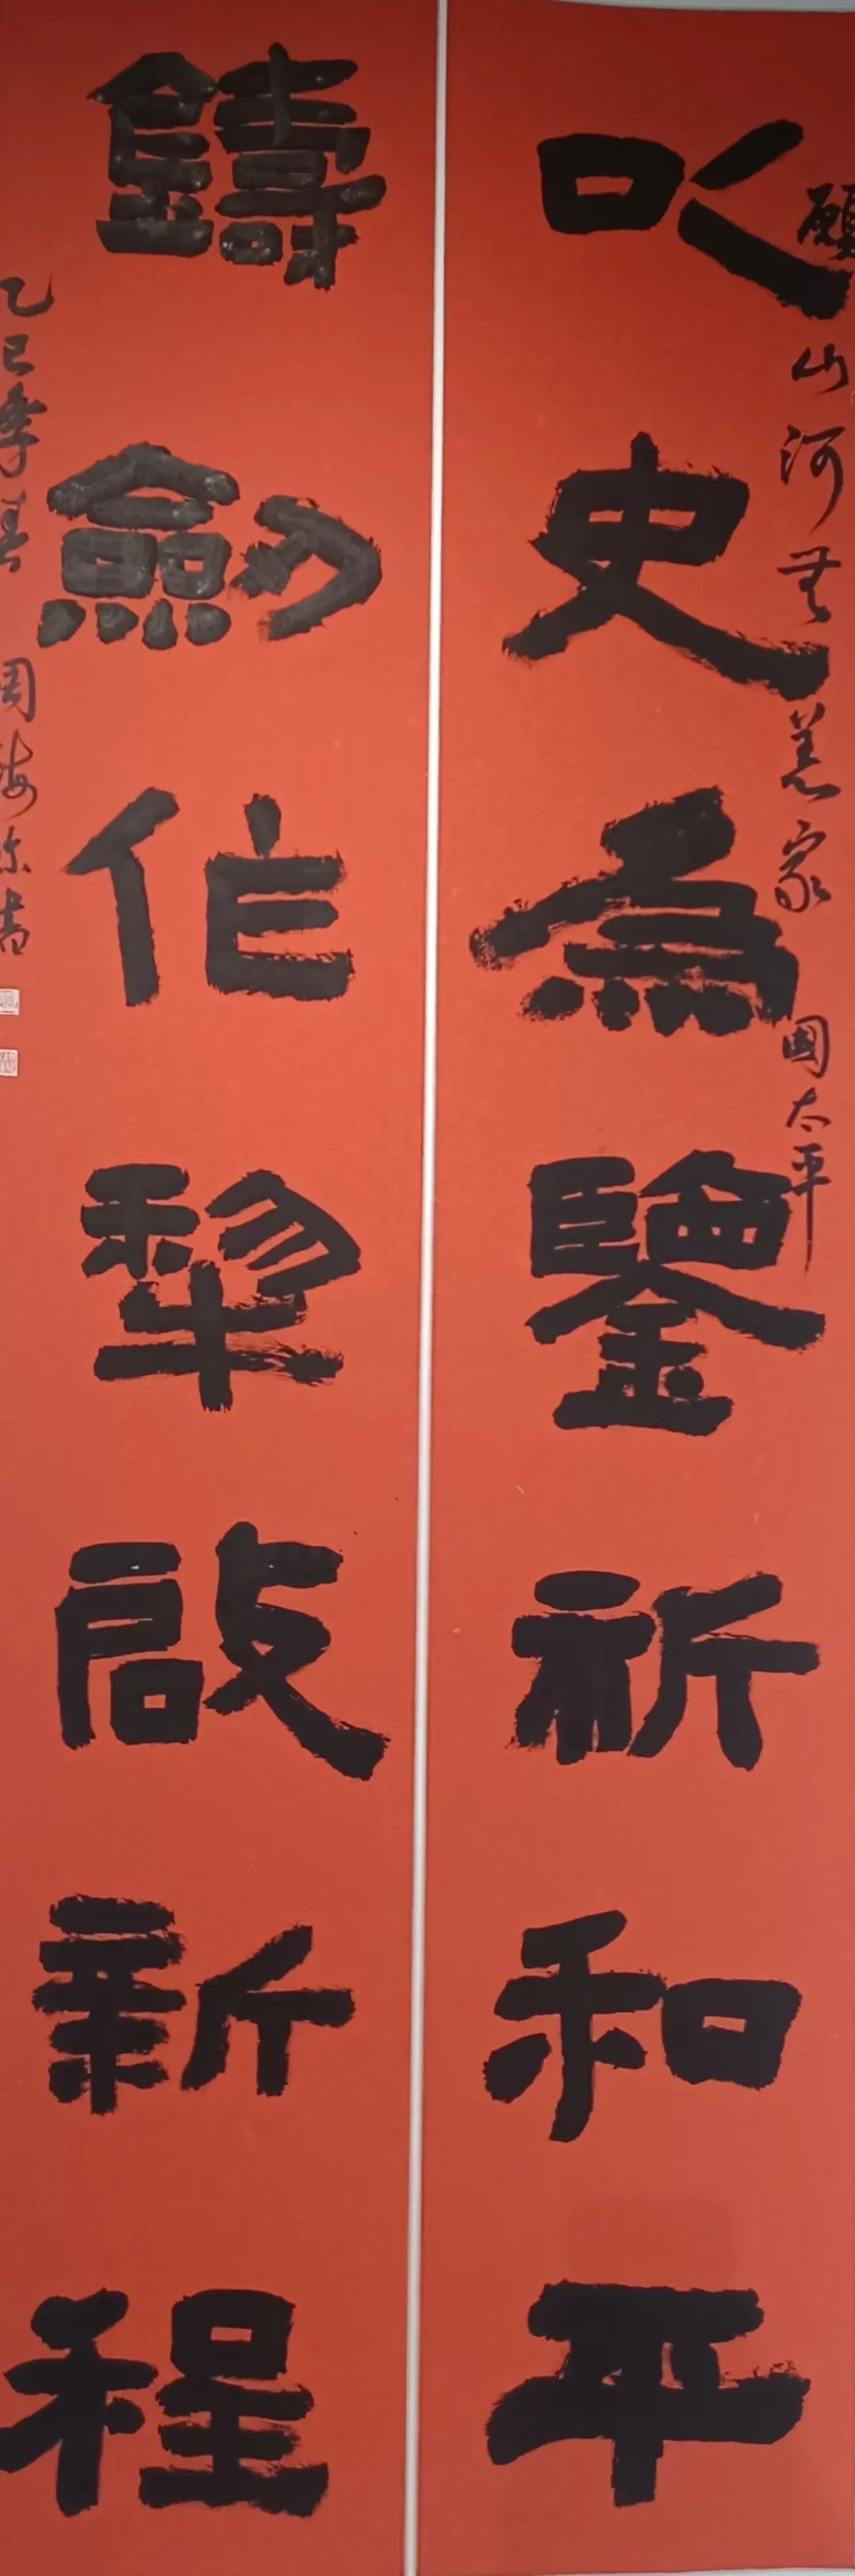 願山河無恙家國太平
以史為鑒祈和平
鑄劒作犁啟新程
乙巳季春周海書